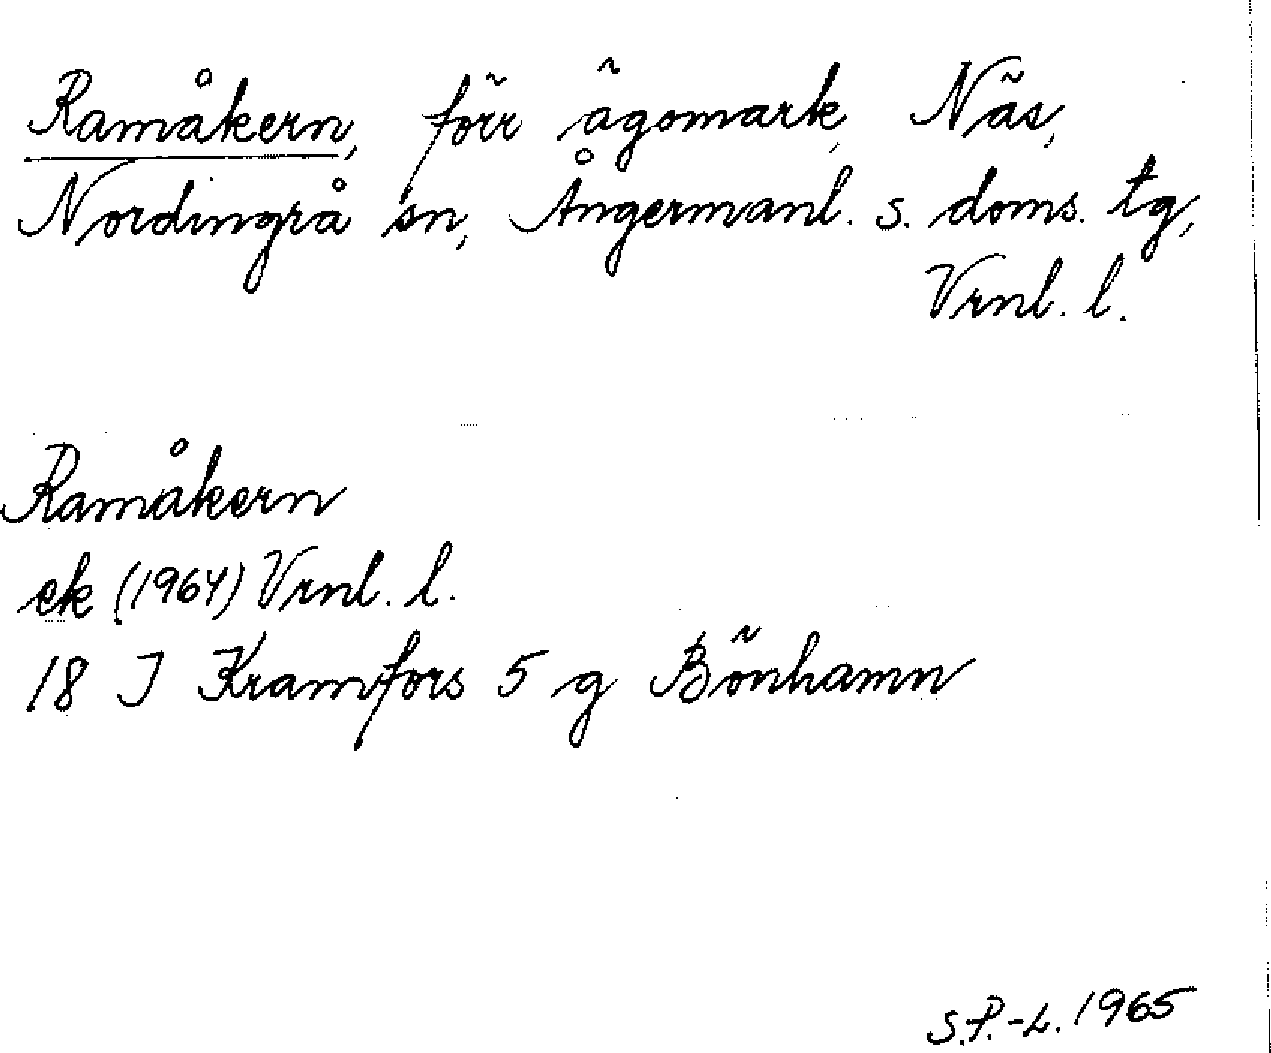 Ramåkern, förr ägomark, Näs,
Nordingrå sn, Ångermanl. s. doms. tg,
Vrnl. l.
Ramåkern
ek (1964) Vrnl. l.
18 J Kramfors 5 g Bönhamn
S.P.-L. 1965